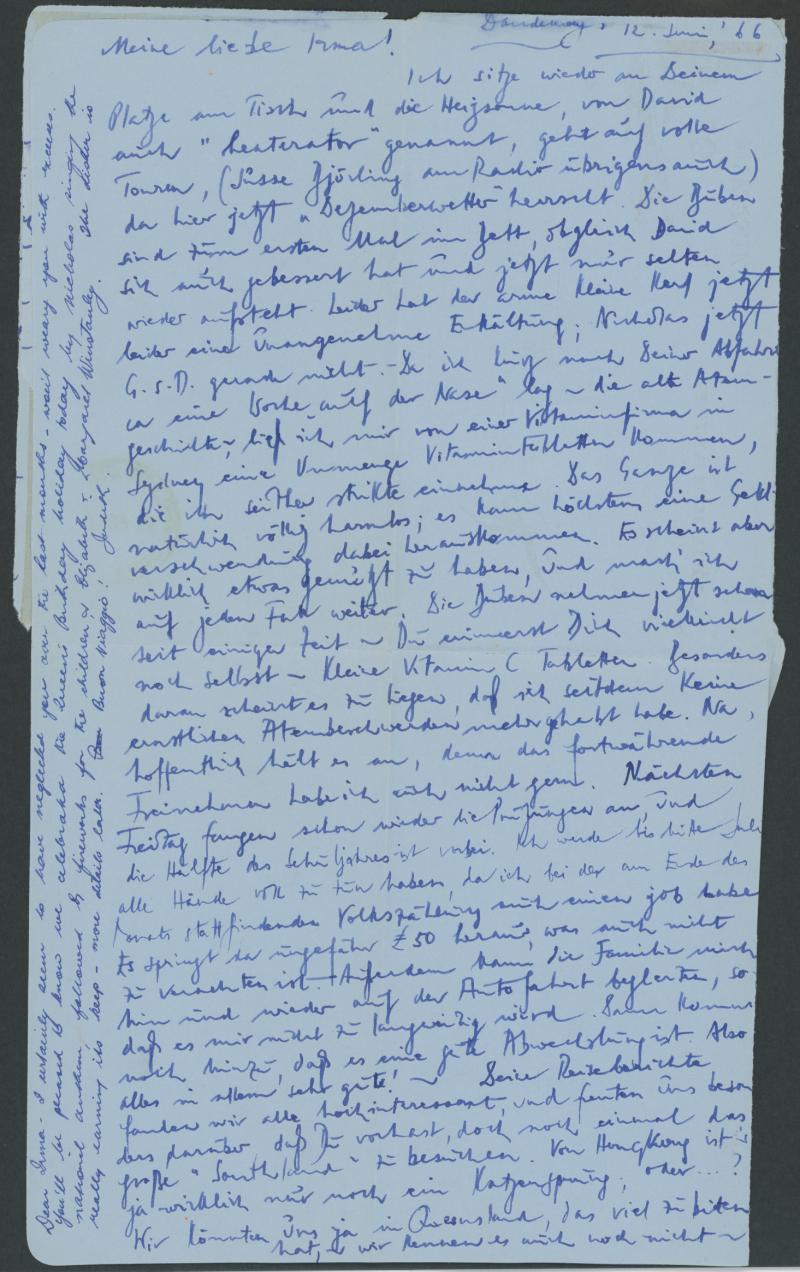 Dandenong, 12. Juni, 66
Meine liebe Irma!
Ich sitze wieder an Deinem
Platze am Tisch und die Heizsonne, von David
auch "heaterator" genannt, geht auf volle
Touren, (Jüsse Björling am Radio übrigens auch)
da hier jetzt "Dezemberwetter" herrscht. Die Buben
sind zum ersten Mal im Bett, obgleich David
sich auch gebessert hat und jetzt nur selten
wieder aufsteht. Leider hat der arme kleine Kerl jetzt
leider eine unangenehme Erkältung, Nicholas jetzt
G.s.D. gerade nicht. - Da ich kurz nach Deiner Abfahrt
ca eine Woche "auf der Nase" lag - die alte Atem-
geschichte -, ließ ich mir von einer Vitaminfirma in
Sydney eine Unmenge Vitamintabletten kommen,
die ich seither strikte einnehme. Das Ganze ist
natürlich völlig harmlos; es kann höchstens eine Geld-
verschwendung dabei herauskommen. Es scheint aber
wirklich etwas genützt zu haben, und mach' ich
auf jeden Fall weiter. Die Buben nehmen jetzt schon
seit einiger Zeit - Du erinnerst Dich vielleicht
noch selbst - kleine Vitamin C Tabletten. Besonders
daran scheint es zu liegen, daß ich seitdem keine
ernstlichen Atembeschwerden mehr gehabt habe. Na,
hoffentlich hält es an, denn das fortwährende
Freinehmen habe ich auch nicht gern. Nächsten
Freitag fangen schon wieder die Prüfungen an, und
die Hälfte des Schuljahres ist vorbei. Ich werde bis Mitte Juli
alle Hände voll zu tun haben, da ich bei der am Ende des
Monats stattfindenden Volkszählung auch einen job habe
Es springt da ungefähr £50 heraus, was auch nicht
zu verachten ist. Außerdem kann die Familie mich
hin und wieder auf der Autofahrt begleiten, so
daß es mir nicht zu langweilig wird. Dann kommt
noch hinzu, daß es eine gute Abwechslung ist. Also
alles in allem sehr gute! - Deine Reiseberichte
fanden wir alle hochinteressant, und freuten uns beson
ders darüber daß Du vorhast, doch noch einmal das
große "Southland" zu besuchen. Von HongKong ist
ja wirklich nur noch ein Katzensprung, oder...?
Wir könnten uns ja in Queensland, das viel zu bieten
hat, wir kennen es auch noch nicht -
Dear Irma - I certainly seem to have neglected you over the last months - won't weary you with excuses.
You'll be pleased to know we celebrated the Queen's Birthday holiday today by Nicholas singing the
national anthem, followed by fireworks for the children & Elizabeth & Margaret Winstanley. The heater is
really earning its keep - more details later. Buon Viaggio! Judith.